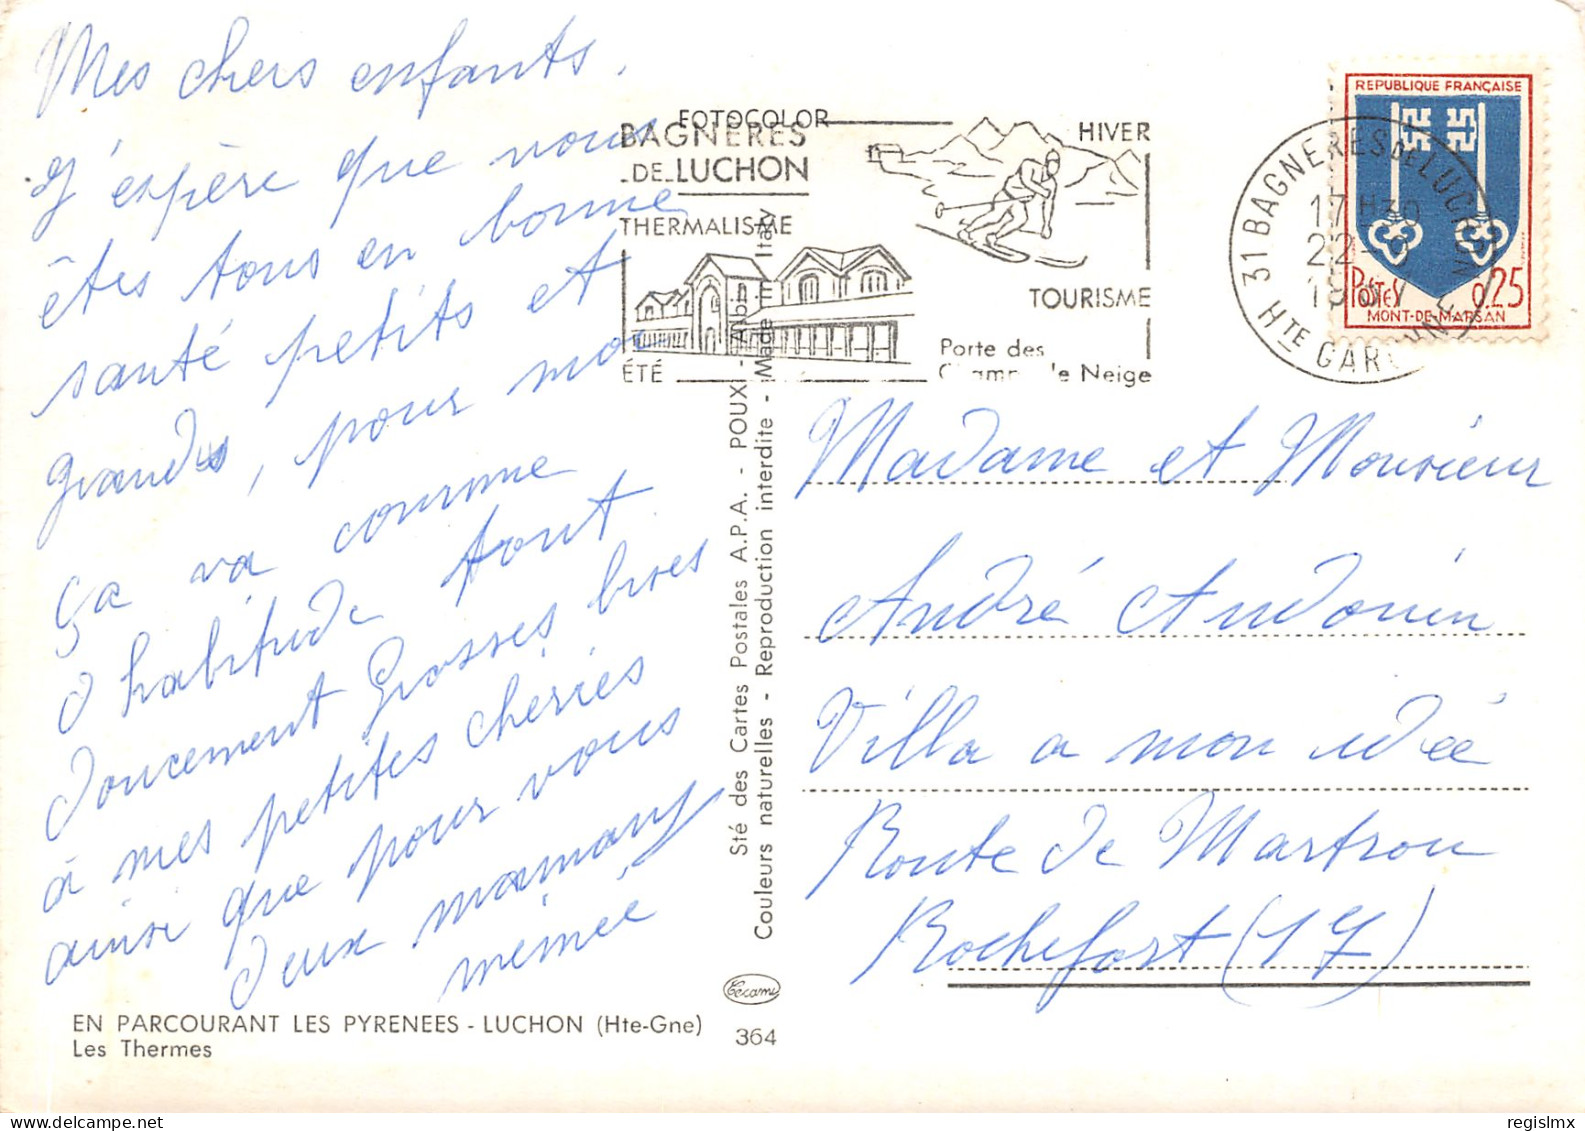 Mes chers enfants.
J'espère que vous
êtes tous en bonne
santé petits et
grands, pour moi
ça va comme
d'habitude tout
doucement Grosses bises
à mes petites chéries
ainsi que pour vous
deux mamany
mémée
EN PARCOURANT LES PYRENEES - LUCHON (Hte-Gne)
Les Thermes
FOTOCOLOR
BAGNERES
DE LUCHON
THERMALISME
ÉTÉ
HIVER
TOURISME
Porte des
Neige
31 BAGNERES DE LUCHON
17H30
22-
19
HTE GARONNE
REPUBLIQUE FRANÇAISE
POSTES 0,25
MONT-DE-MARSAN
Sté des Cartes Postales A.P.A. - POUX - Albi - Made in Italy
Couleurs naturelles - Reproduction interdite -
Cécami
364
Madame et Monsieur
André Audouin
Villa a mon idée
Route de Martrou
Rochefort (17)
regislmx